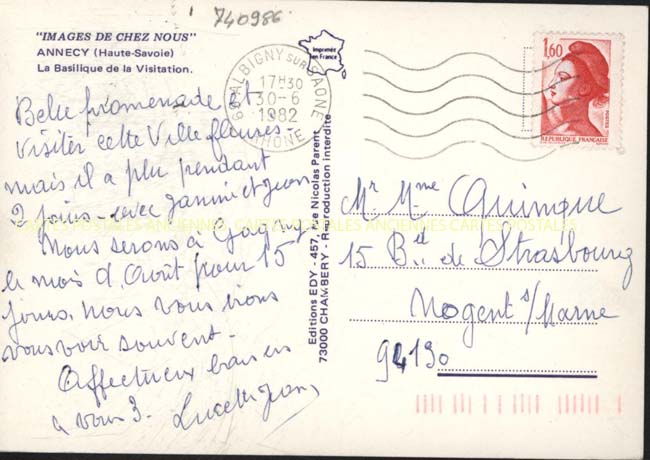 740986
"IMAGES DE CHEZ NOUS"
ANNECY (Haute-Savoie)
La Basilique de la Visitation.
Belle promenade et
visiter cette Ville fleures -
mais il a plu pendant
2 jours - avec jannie et jean
Nous serons à Gagny
le mois d'Août pour 15
jours. Nous vous irons
vous voir souvent -
Affectueux baisers
à vous 3. Lucette jean
69 ALBIGNY SUR SAONE
17H30
30-6
1982
RHÔNE
Imprimé
en France
Editions EDY - 457, rue Nicolas Parent
73000 CHAMBERY - Reproduction interdite
1,60
POSTES
REPUBLIQUE FRANÇAISE
Mr Mme Quinque
15 Bd de Strasbourg
Nogent s/Marne
94130
CARTES POSTALES ANCIENNES CARTES POSTALES ANCIENNES CARTES POSTALES